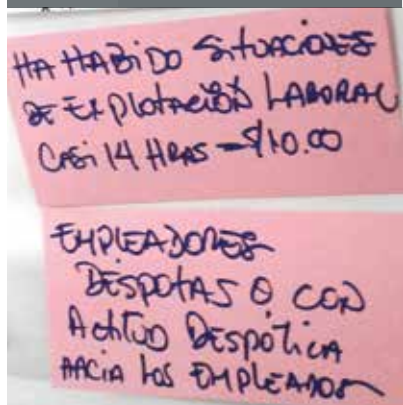 HA HABIDO SITUACIONES
DE EXPLOTACIÓN LABORAL
CASI 14 HRAS - $10.00
EMPLEADORES
DESPOTAS O CON
ACTITUD DESPÓTICA
HACIA LOS EMPLEADOS